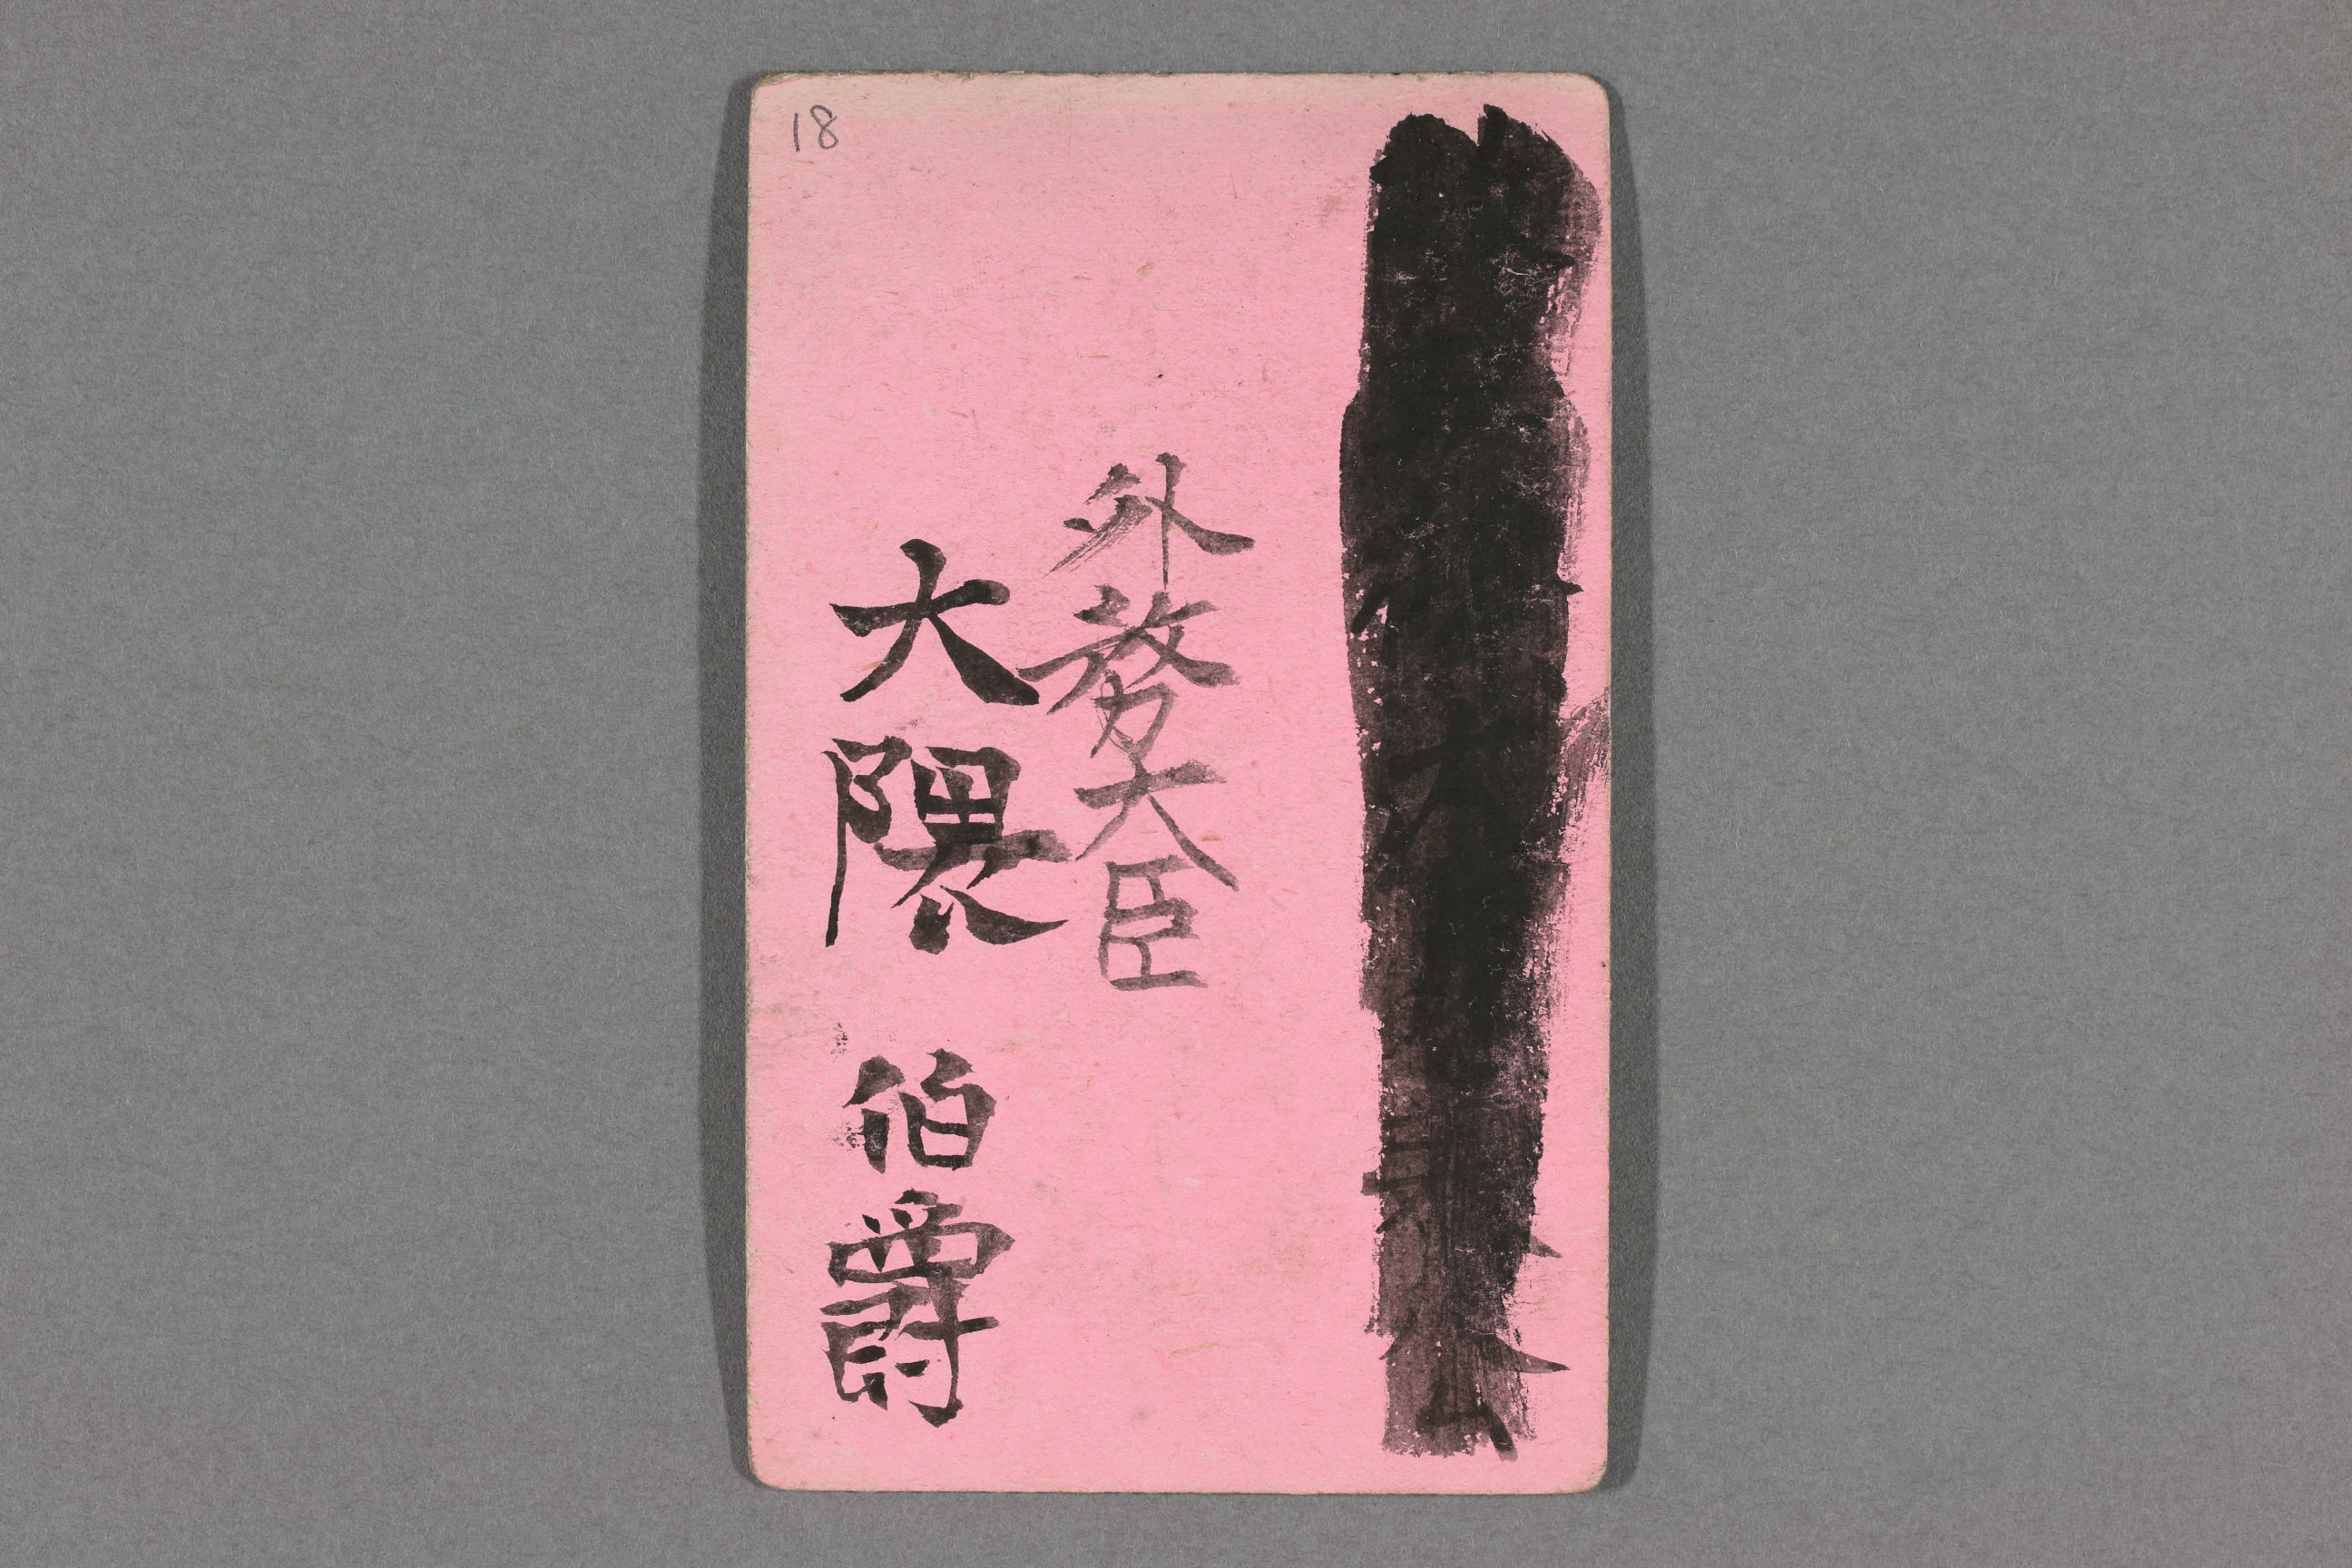 18
外務大臣
大隈 伯爵